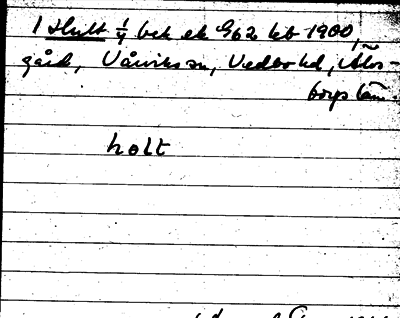 1 Hult 1/4 bek ek 9/62 leb 1900,
gård, Vårviks sn, Vedbo hd, Älvs-
borgs län.
holt